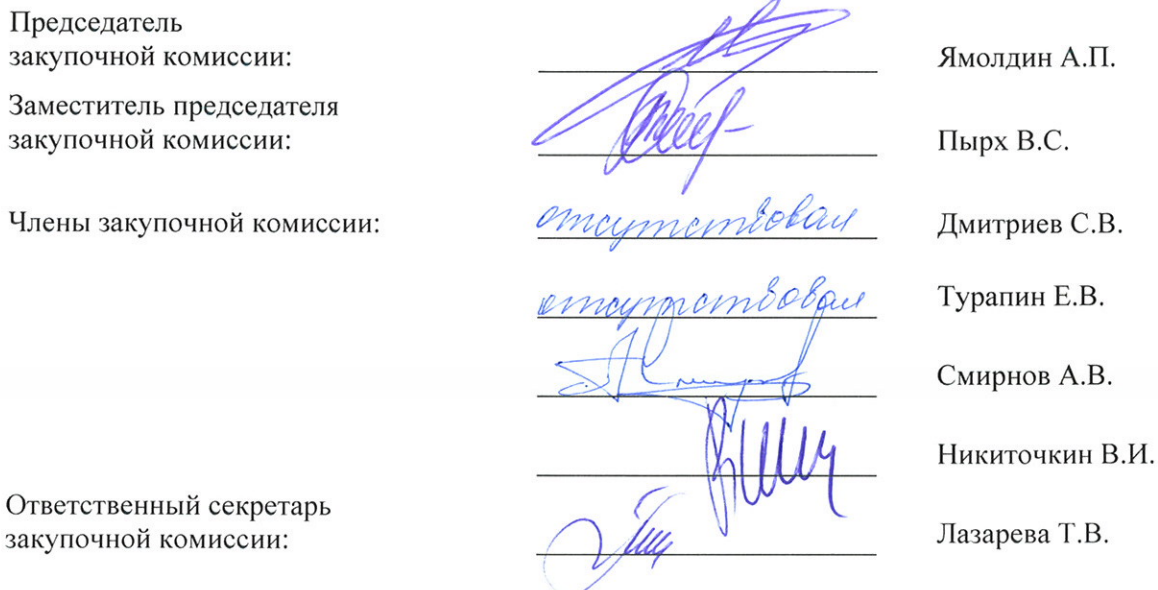 Председатель
закупочной комиссии: Ямолдин А.П.
Заместитель председателя
закупочной комиссии: Пырх В.С.
Члены закупочной комиссии: отсутствовал Дмитриев С.В.
отсутствовал Турапин Е.В.
Смирнов А.В.
Никиточкин В.И.
Ответственный секретарь
закупочной комиссии: Лазарева Т.В.